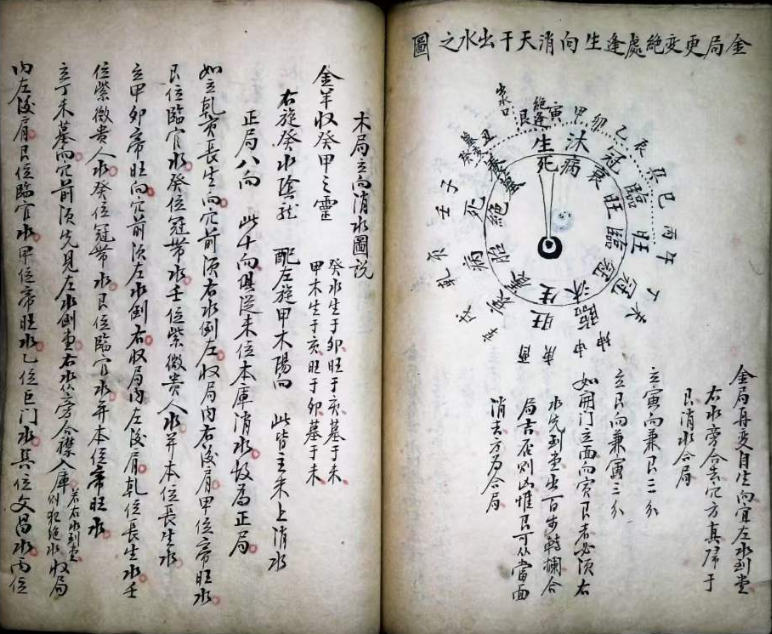 金局更變絕處逢生向消天干出水之圖
寅
甲
卯
乙
辰
巽
巳
丙
午
丁
未
坤
申
庚
酉
辛
戌
乾
亥
壬
子
癸
丑
艮
生
沐
冠
臨
旺
死
病
衰
旺
臨
冠
沐
生
絕
胎
金局再变自生向宜左水到堂
右水旁合去穴方真歸于
艮消水合局
立寅向兼艮二分
立艮向兼寅三分
如開門立面向寅艮者必須右
水先到堂出百步轉攔合
局吉否則凶惟艮可从當面
消去方为合局
木局立向消水圖説
金羊收癸甲之靈
癸水生于卯旺于亥墓于未
甲木生于亥旺于卯墓于未
右旋癸水陰龍 配左旋甲木陽向 此皆主未上消水
正局八向 此十向俱從未位本庫消水故爲正局
如立乾亥長生向穴前須右水倒左收局内右後肩甲位帝旺水
艮位臨官水癸位冠帶水壬位紫微貴人水并本位長生水
立甲卯帝旺向穴前須左水倒右收局内左後肩乾位長生水壬
位紫微貴人水癸位冠帶水艮位臨官水并本位帝旺水
立丁未墓向穴前須先見左水倒堂右水从旁合襟入庫若右水到堂則犯絕水收局
内左後肩艮位臨官水甲位帝旺水乙位巨门水巽位文昌水丙位